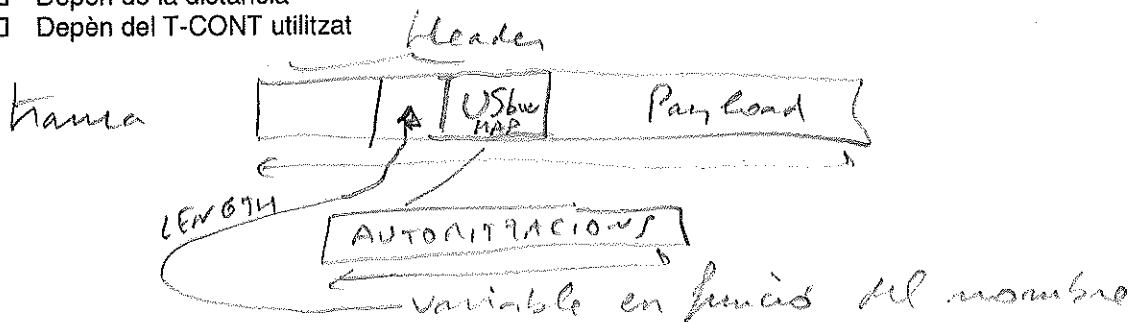 Depèn de la distància
Depèn del T-CONT utilitzat
Header
trama
USbw Payload
MAP
LENGTH
AUTORITZACIONS
variable en funció del nombre